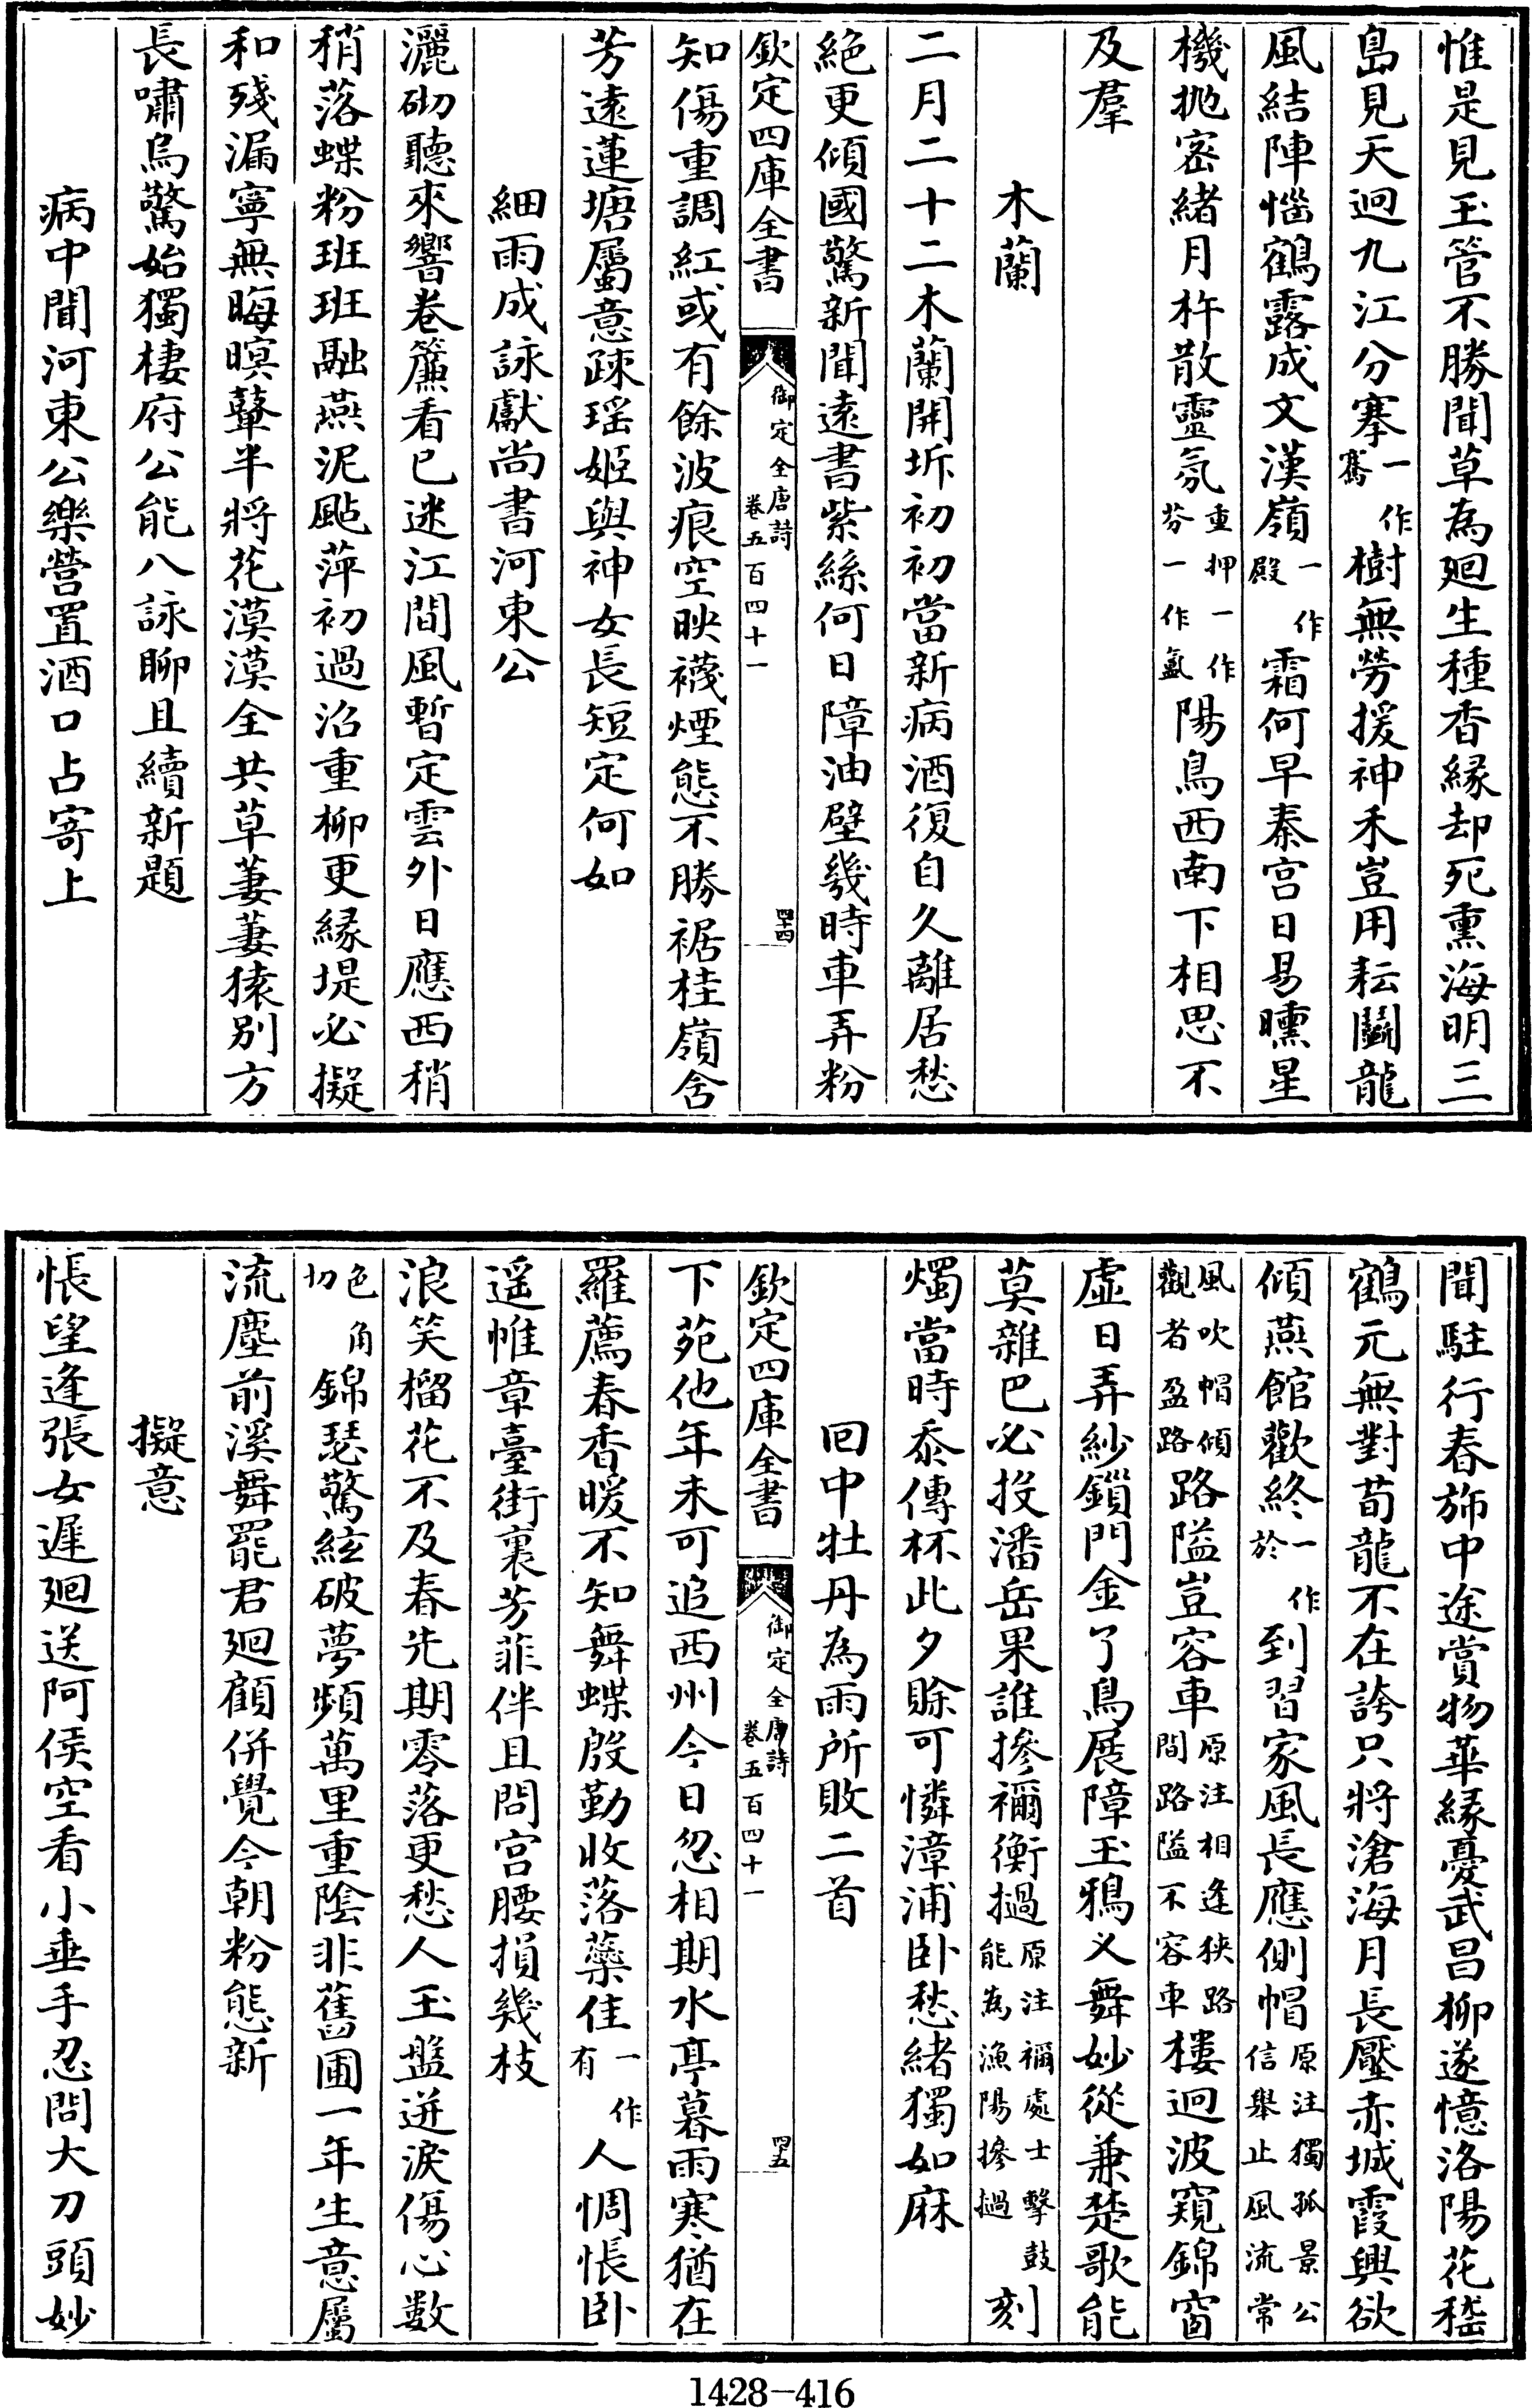 惟是見玉管不勝聞草為廻生種香縁却死熏海明三
島見天迥九江分搴一作騫樹無勞援神禾豈用耘鬭龍
風結陣惱鶴露成文漢嶺一作殿霜何早秦宫日易曛星
機抛密緒月杵散靈氛重押一作芬一作氳陽鳥西南下相思不
及羣
木蘭
二月二十二木蘭開坼初初當新病酒復自久離居愁
絶更傾國驚新聞遠書紫絲何日障油壁幾時車弄粉
欽定四庫全書
御定全唐詩
卷五百四十一
四十四
知傷重調紅或有餘波痕空映襪煙態不勝裾桂嶺含
芳遠蓮塘屬意疎瑶姬與神女長短定何如
細雨成詠獻尚書河東公
灑砌聽來響卷簾看已迷江間風暫定雲外日應西稍
稍落蝶粉班班融燕泥颭萍初過沼重柳更縁堤必擬
和殘漏寧無晦暝鼙半將花漠漠全共草萋萋猿别方
長嘯烏驚始獨棲府公能八詠聊且續新題
病中聞河東公樂營置酒口占寄上
聞駐行春旆中途賞物華縁憂武昌柳遂憶洛陽花嵇
鶴元無對荀龍不在誇只將滄海月長壓赤城霞興欲
傾燕館歡終一作於到習家風長應側帽原注獨孤景公信舉止風流常
風吹帽傾觀者盈路路隘豈容車原注相逢狹路間路隘不容車樓迥波窺錦窗
虚日弄紗鎻門金了鳥展障玉鴉义舞妙從兼楚歌能
莫雜巴必投潘岳果誰摻禰衡撾原注禰處士擊鼓能為漁陽摻撾刻
燭當時忝傳杯此夕賖可憐漳浦卧愁緒獨如麻
回中牡丹為雨所敗二首
欽定四庫全書
御定全唐詩
卷五百四十一
四十五
下苑他年未可追西州今日忽相期水亭暮雨寒猶在
羅薦春香暖不知舞蝶殷勤收落蘂佳一作有人惆悵卧
遥帷章臺街裏芳菲伴且問宫腰損幾枝
浪笑榴花不及春先期零落更愁人玉盤迸淚傷心數
色角切錦瑟驚絃破夢頻萬里重陰非舊圃一年生意屬
流塵前溪舞罷君廻顧併覺今朝粉態新
擬意
悵望逢張女遲廻送阿侯空看小垂手忍問大刀頭妙
1428-416